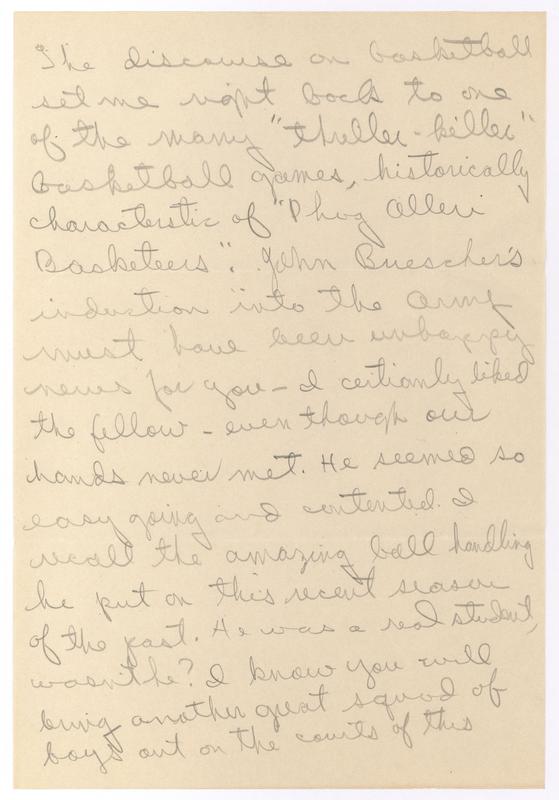 The discourse on basketball
set me right back to one
of the many "thriller-killer"
basketball games, historically
characterstic of "Phog Allen
Basketeers". John Buescher's
induction into the Army
must have been unhappy
news for you - I certianly liked
the fellow - even though our
hands never met. He seemed so
easy going and contented. I
recall the amazing ball handling
he put on this recent season
of the past. He was a real student,
wasn't he? I know you will
bring another great squad of
boys out on the courts of this